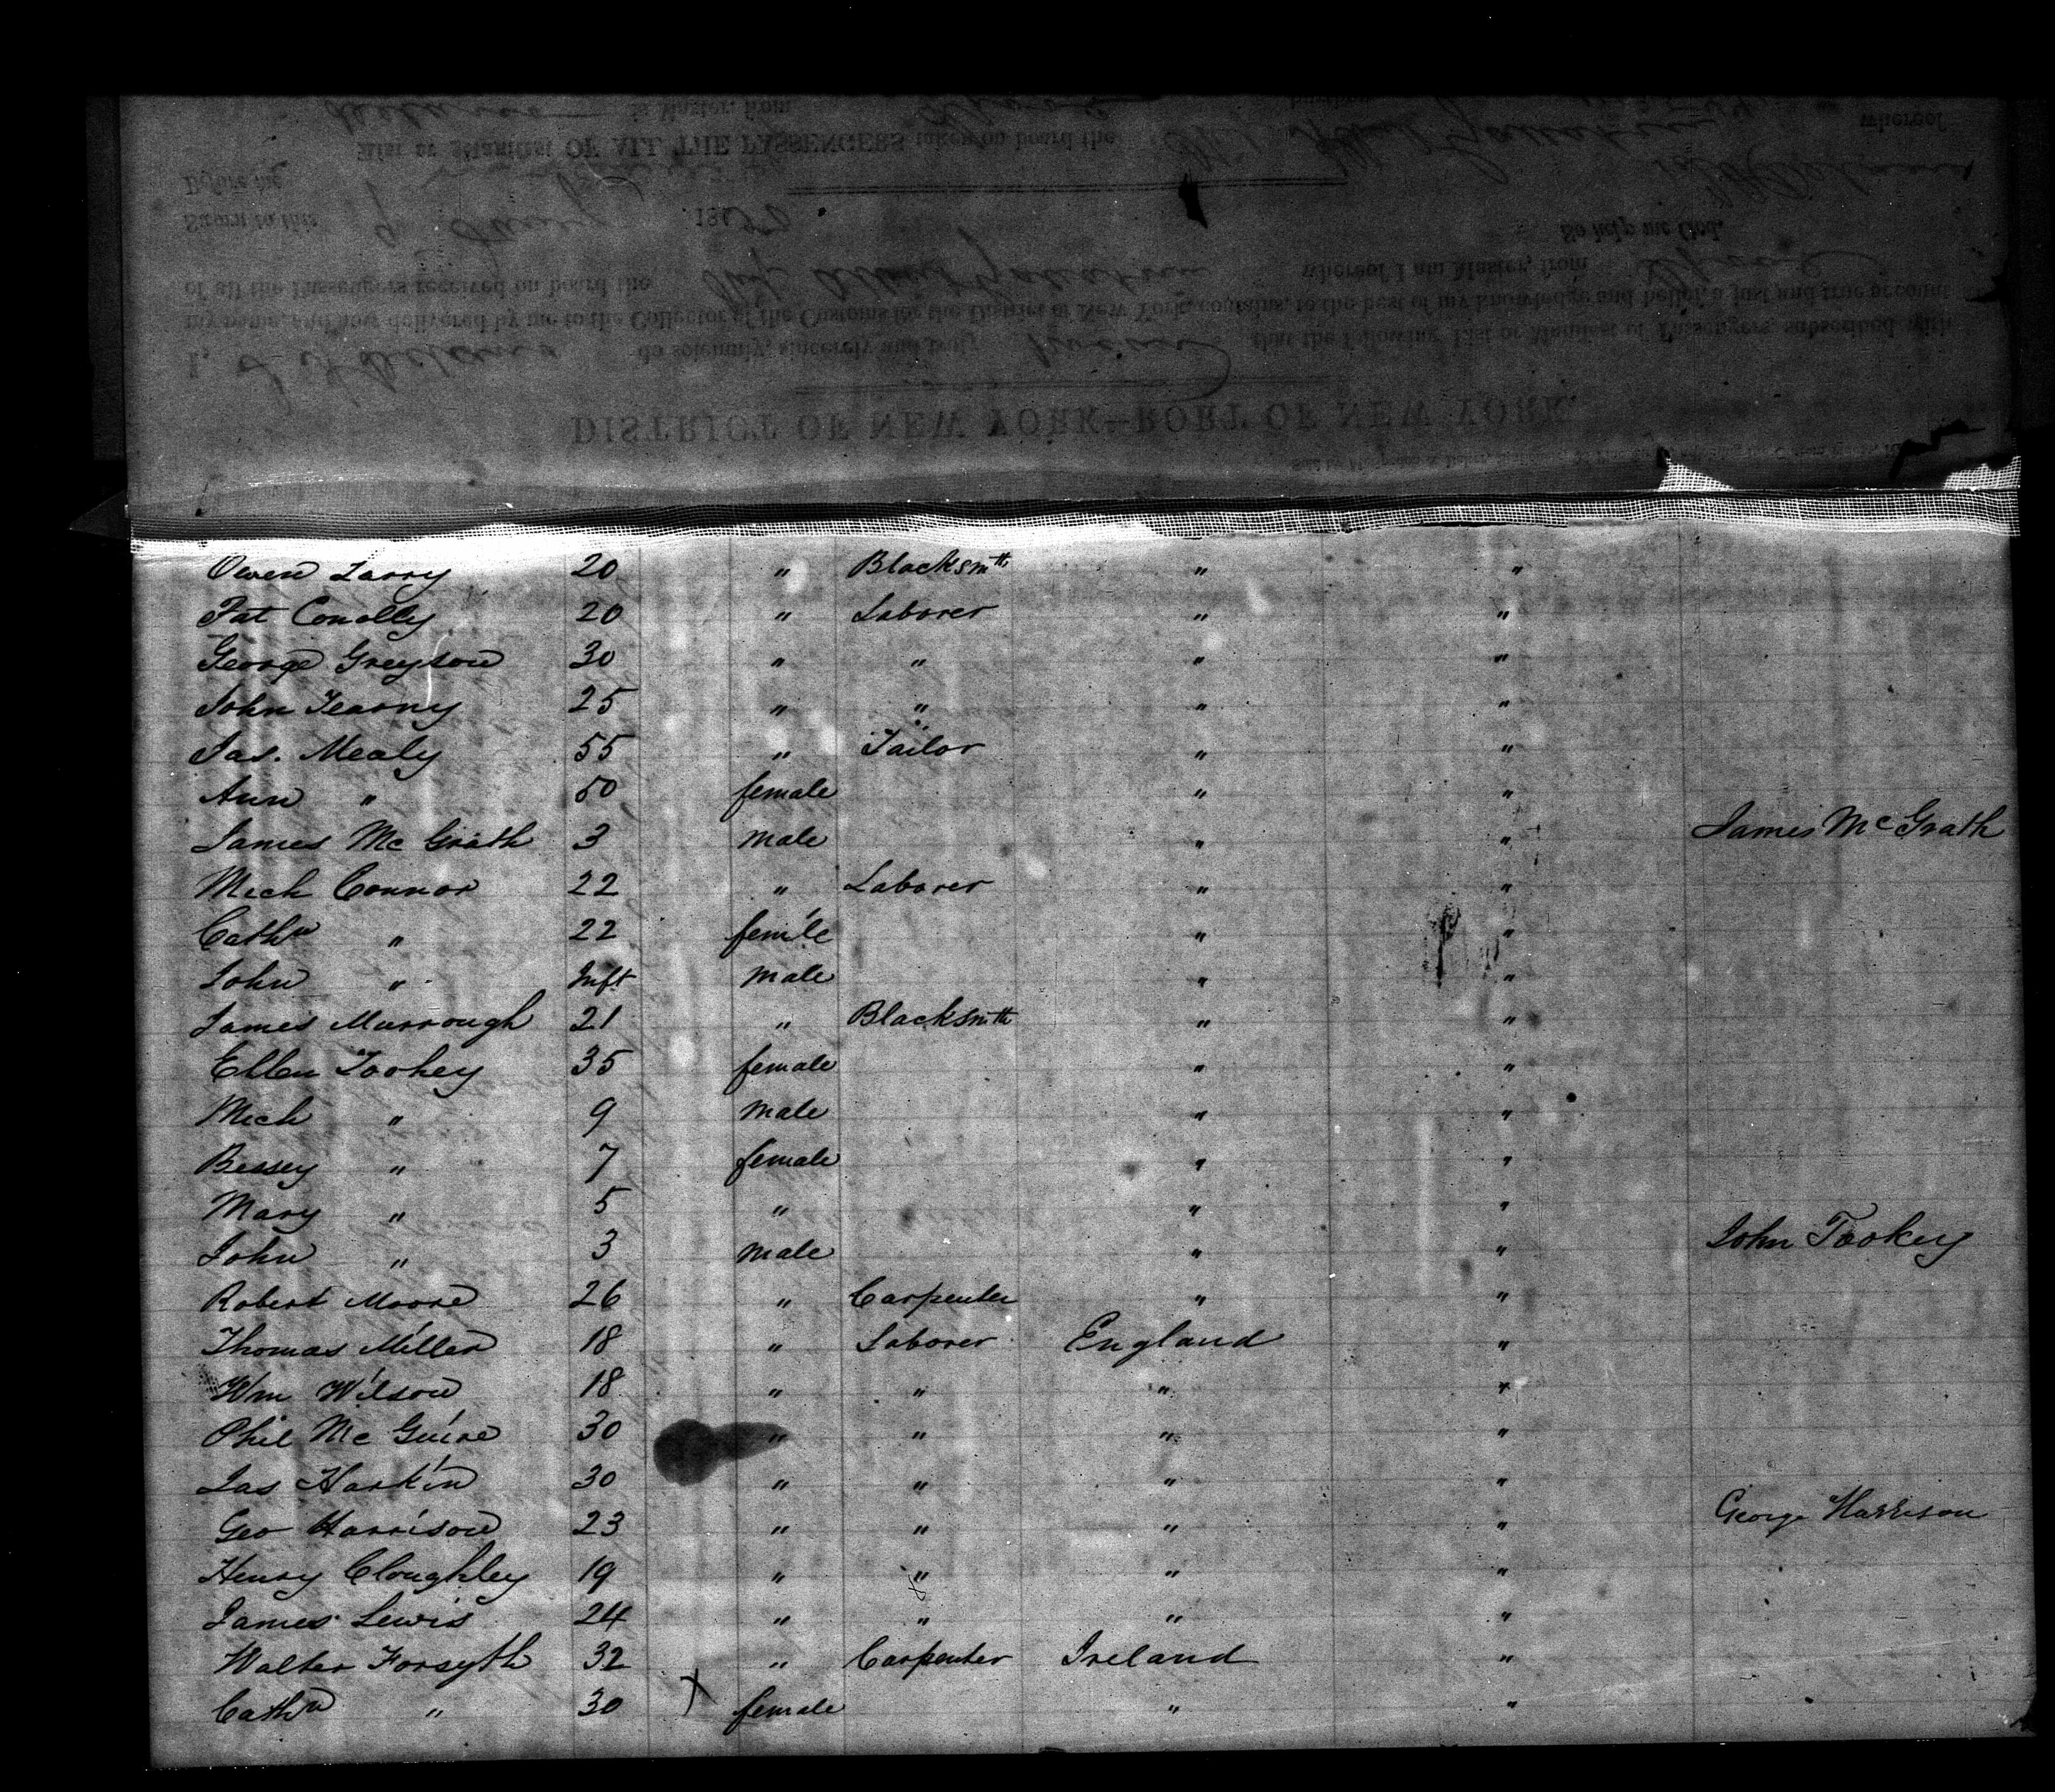 DISTRICT OF NEW YORK—PORT OF NEW YORK.
I, do solemnly, sincerely and truly that the following List or Manifest of Passengers, subscribed with
my name, and now delivered by me to the Collector of the Customs for the District of New York, contains, to the best of my knowledge and belief, a just and true account
of all the Passengers received on board the Ship Albert Gallatin whereof I am Master, from
So help me God.
Sworn to this 9 1850
Before me
List or Manifest OF ALL THE PASSENGERS taken on board the whereof
is Master, from burthen
Owen Larry 20 " Blacksmth " "
Pat Conolly 20 " Laborer " "
George Greyson 30 " " " "
John Tearny 25 " " " "
Jas. Mealy 55 " Tailor " "
Ann " 50 female " "
James Mc Grath 3 male " " James McGrath
Mich Connor 22 " Laborer " "
Cathn " 22 fem'le " "
John " Inft male " "
James Murrough 21 " Blacksmth " "
Ellen Toohey 35 female " "
Mich " 9 male " "
Bessey " 7 female " "
Mary " 5 " " "
John " 3 male " " John Tookey
Robert Moore 26 " Carpenter " "
Thomas Miller 18 " Laborer England "
Wm Wilson 18 " " " "
Phil Mc Guire 30 " " " "
Jas Harkin 30 " " " "
Geo Harrison 23 " " " " George Harrison
Henry Cloughley 19 " " " "
James Lewis 24 " " " "
Walter Forsyth 32 " Carpenter Ireland "
Cathn " 30 X female " "